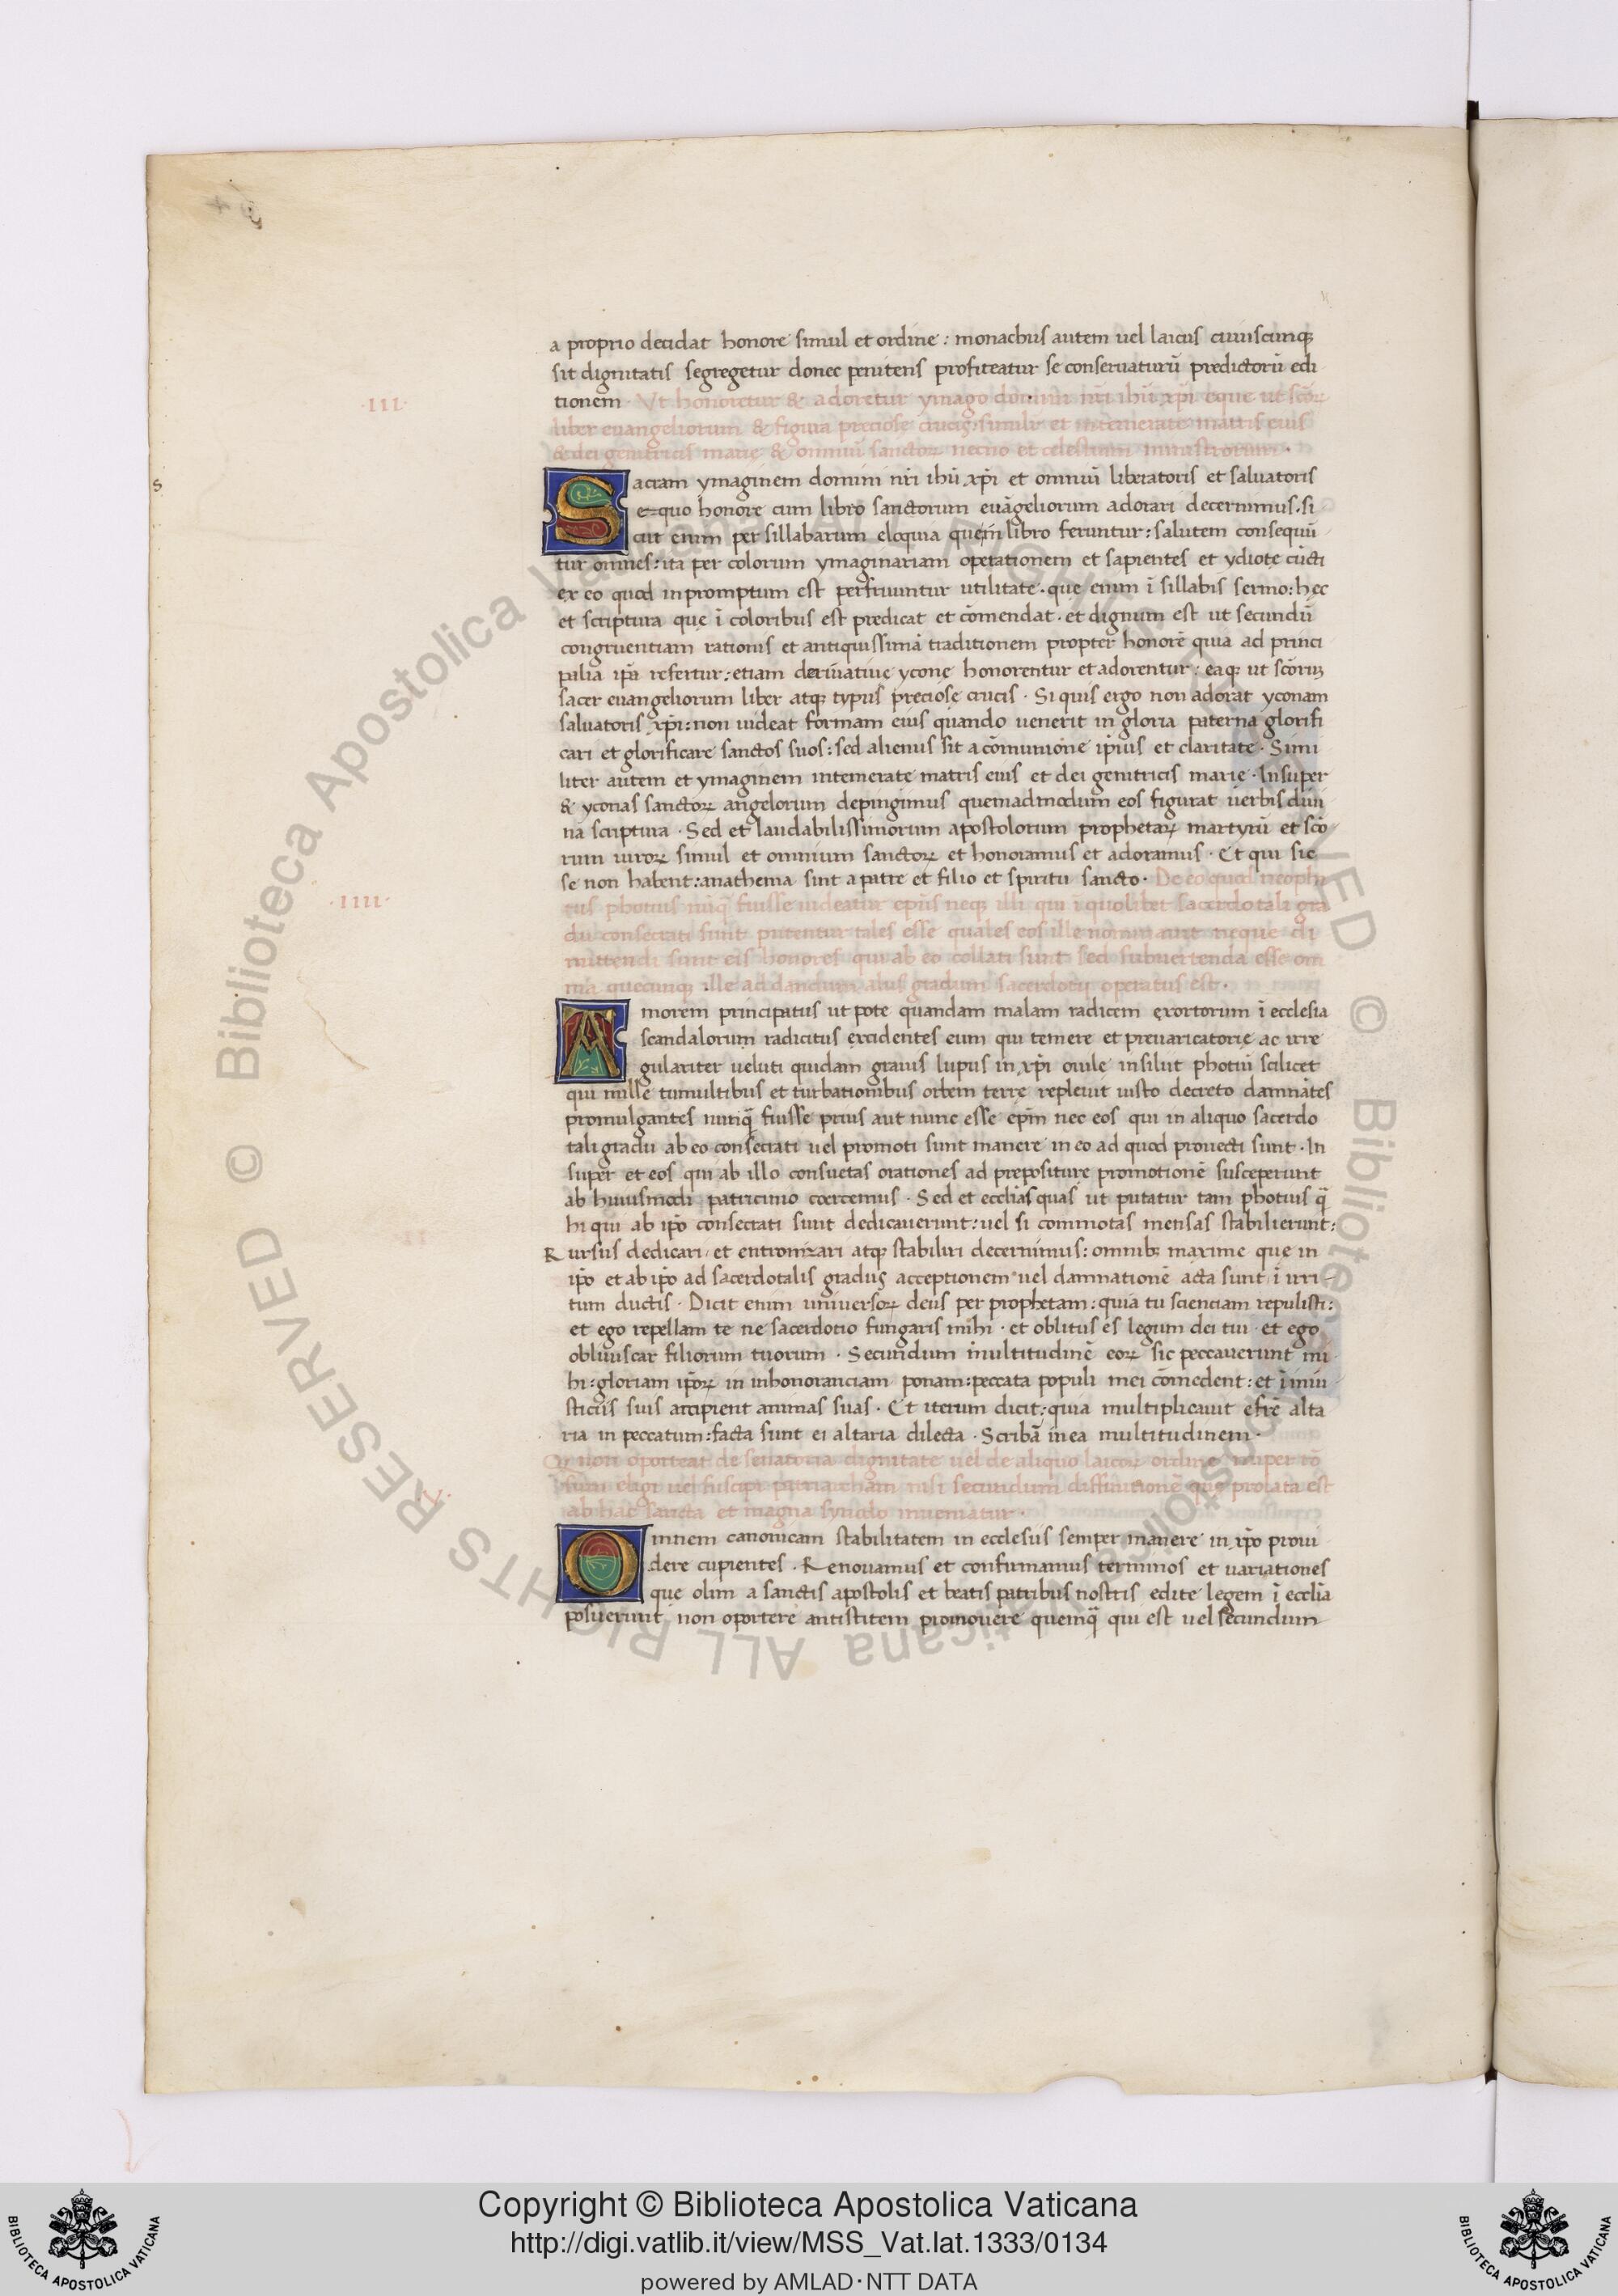 a proprio decidat honore simul et ordine : monachus autem uel laicus cuiuscunqꝫ
sit dignitatis segregetur donec penitens profiteatur se conseruaturū predictorū edi
·III· tionem · Ut honoretur & adoretur ymago domini nr̄i ihū xp̄i eque ut scōꝝ
liber euangeliorum & figura preciosę crucis, simile et intemerate matris eius
& dei genitricis marię & omniū sanctoꝝ necno et celestium ministrorum ·
s Sacram ymaginem domini nr̄i ihū xp̄i et omniū liberatoris et saluatoris
equo honore cum libro sanctorum euāgeliorum adorari decernimus · si
cut enim per sillabarum eloquia que in libro feruntur : salutem consequū
tur omnes : ita per colorum ymaginariam operationem et sapientes et ydiote cūcti
ex eo quod inpromptum est perfruuntur utilitate · que enim ī sillabis sermo : hęc
et scriptura que ī coloribus est predicat et cōmendat · et dignum est ut secundū
congruentiam rationis et antiquissimā traditionem propter honorē quia ad princi
palia ip̄a refertur : etiam deriuatiue ycone honorentur et adorentur : eaqꝫ ut scōrum
sacer euangeliorum liber atqꝫ typus preciosę crucis · Si quis ergo non adorat yconam
saluatoris xp̄i : non uideat formam eius quando uenerit in gloria paterna glorifi
cari et glorificare sanctos suos : sed alienus sit a cōmunione ip̄ius et claritate · Simi
liter autem et ymaginem intemerate matris eius et dei genitricis marię · Insuper
& yconas sanctoꝝ angelorum depingimus quemadmodum eos figurat uerbis diui
na scriptura · Sed et laudabilissimorum apostolorum prophetaꝝ martyrū et scō
rum uiroꝝ simul et omnium sanctoꝝ et honoramus et adoramus · Et qui sic
se non habent : anathema sint a patre et filio et spiritu sancto · De eo quod neophi
·IIII· tus photius nūq̄ fuisse uideatur ep̄us neqꝫ illi qui ī quolibet sacerdotali gra
du consecrati sunt putentur tales esse quales eos ille neque di
mittendi sunt eis honores qui ab eo collati sunt sed subuertenda esse om
nia quecunqꝫ ille ad dandum alius gradum sacerdotij operatus est ·
Amorem principatus ut pote quandam malam radicem exortorum ī ecclesia
scandalorum radicitus excidentes eum qui temere et preuaricatorie ac irre
gulariter ueluti quidam grauis lupus in xp̄i ouile insiluit photiū scilicet
qui mille tumultibus et turbationibus orbem terrę repleuit iusto decreto damnātes
promulgantes nunq̄ fuisse prius aut nunc esse ep̄m nec eos qui in aliquo sacerdo
tali gradu ab eo consecrati uel promoti sunt manere in eo ad quod prouecti sunt · In
super et eos qui ab illo consuetas orationes ad prepositurę promotionē susceperunt
ab huiusmodi patricinio coercemus · Sed et eccl̄ias quas ut putatur tam photius q̄
hi qui ab ip̄o consecrati sunt dedicauerunt : uel si commotas mensas stabilierunt :
Rursus dedicari et entronizari atqꝫ stabiliri decernimus : omnibꝫ maxime que in
ip̄o et ab ip̄o ad sacerdotalis gradus acceptionem uel damnationē acta sunt ī irri-
tum ductis · Dicit enim uniuersoꝝ deus per prophetam : quia tu scienciam repulisti :
et ego repellam te ne sacerdotio fungaris mihi · et oblitus es legum dei tui · et ego
obliuiscar filiorum tuorum · Secundum multitudinē eoꝝ sic peccauerunt mi
hi : gloriam ip̄oꝝ in inhonoranciam ponam : peccata populi mei cōmedent : et ī iniu
sticiis suis accipient animas suas · Et iterum dicit : quia multiplicauit efrē alta
ria in peccatum : facta sunt ei altaria dilecta · Scribā in ea multitudinem ·
Qꝫ non oporteat de senatoria dignitate uel de aliquo laicoꝝ ordine nuper tō
·V· sum eligi uel suscipi patriarcham nisi secundum diffinitionē que prolata est
ab hac sancta et magna synodo inueniatur ·
Omnem canonicam stabilitatem in ecclesiis semper manere in xp̄o proui
dere cupientes · Renouamus et confirmamus terminos et uariationes
que olim a sanctis apostolis et beatis patribus nostris edite legem ī eccl̄ia
posuerunt non oportere antistitem promouere quemq̄ qui est uel secundum
© Biblioteca Apostolica Vaticana ALL RIGHTS RESERVED © Biblioteca Apostolica Vaticana ALL RIGHTS RESERVED
Copyright © Biblioteca Apostolica Vaticana
http://digi.vatlib.it/view/MSS_Vat.lat.1333/0134
powered by AMLAD·NTT DATA
BIBLIOTECA APOSTOLICA VATICANA
BIBLIOTECA APOSTOLICA VATICANA